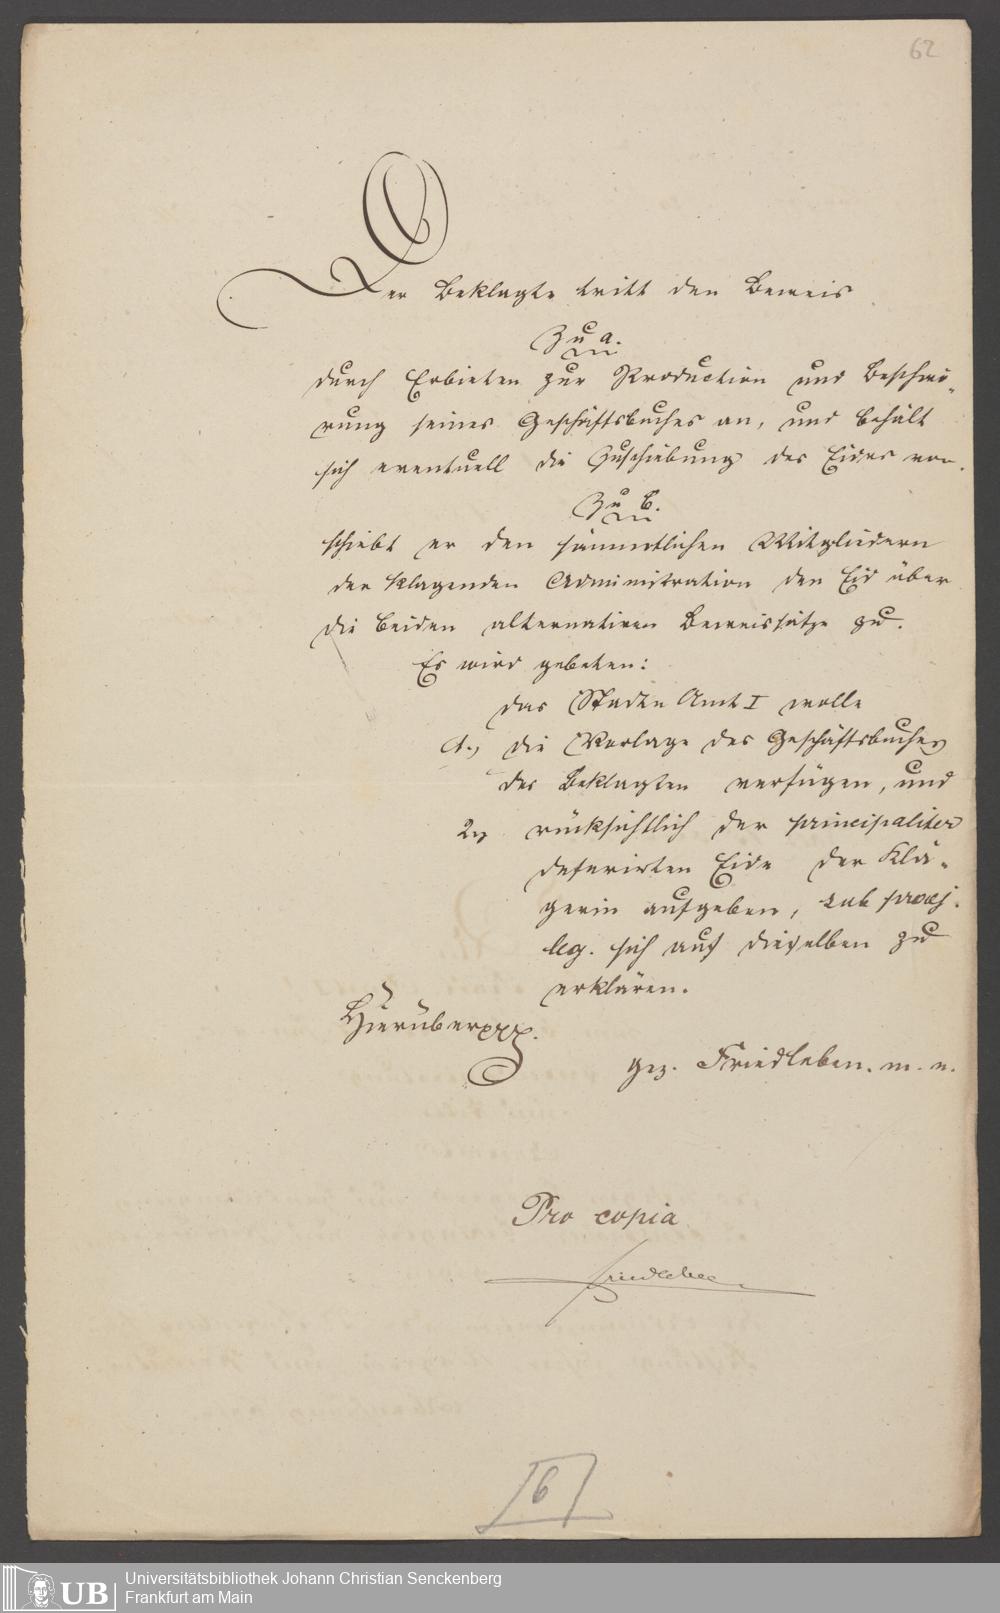 62
Der Beklagte tritt den Beweis
Zu a.
durch Erbieten zur Production und Beschwö-
rung seines Geschäftsbuches an, und behält
sich eventuell die Zuschiebung des Eides vor.
Zu b.
schiebt er den sämmtlichen Mitgliedern
der klagenden Administration den Eid über
die beiden alternativen Beweissätze zu.
Es wird gebeten:
das Stadt Amt I wolle
1., die Vorlage des Geschäftsbuches
des Beklagten verfügen, und
2., rücksichtlich der principaliter
deferirten Eide der Klä-
gerin aufgeben, sub praej.
leg. sich auf dieselben zu
erklären.
Hierüber
gez. Friedleben. m. n.
Pro copia
Friedleben
6
UB Universitätsbibliothek Johann Christian Senckenberg
Frankfurt am Main